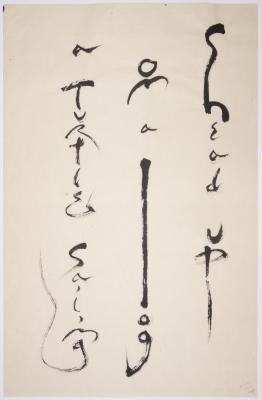 head up
on a log
a turtle sailing